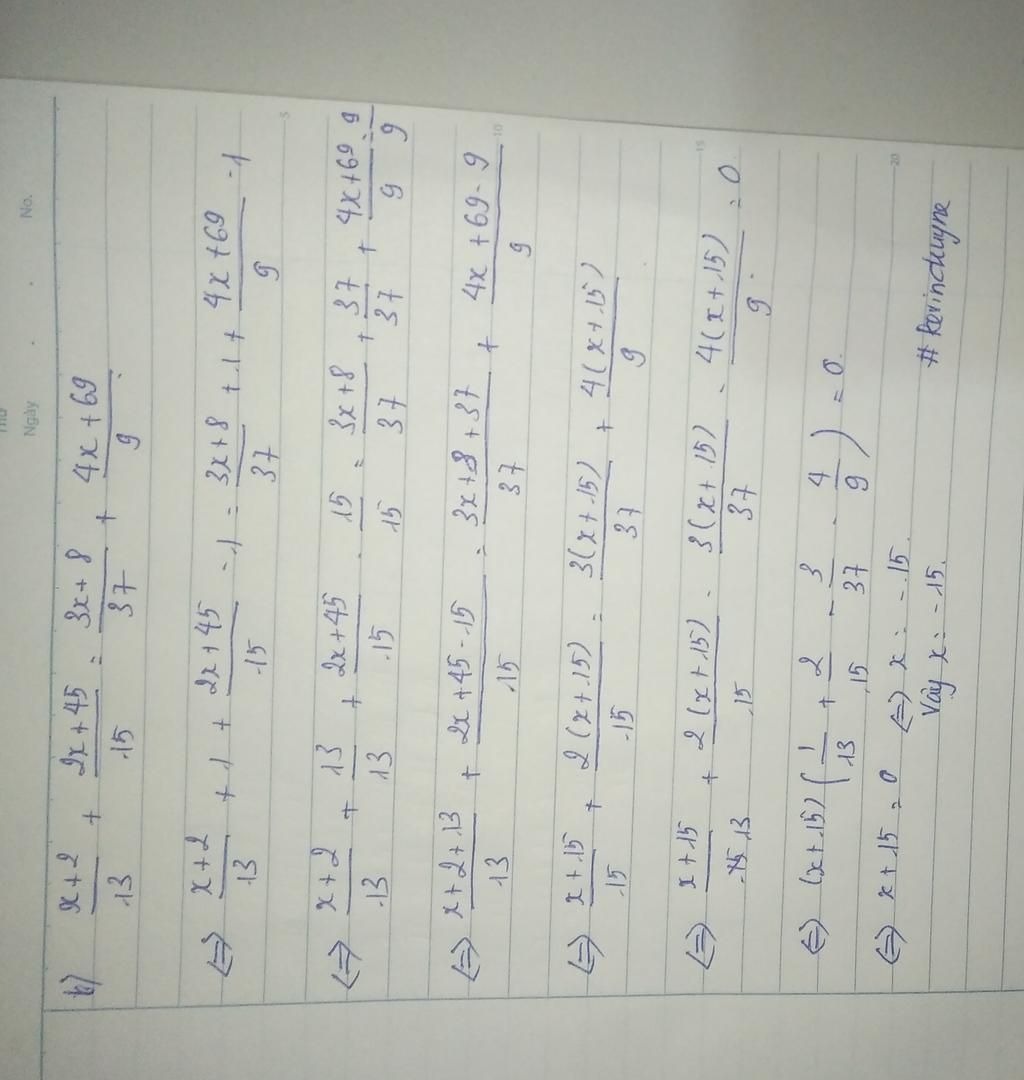 Thứ
Ngày . . No.
b) \frac{x+2}{13} + \frac{2x+45}{15} = \frac{3x+8}{37} + \frac{4x+69}{9}
⇔ \frac{x+2}{13} + 1 + \frac{2x+45}{15} - 1 = \frac{3x+8}{37} + 1 + \frac{4x+69}{9} - 1
5
⇔ \frac{x+2}{13} + \frac{13}{13} + \frac{2x+45}{15} - \frac{15}{15} = \frac{3x+8}{37} + \frac{37}{37} + \frac{4x+69}{9} - \frac{9}{9}
⇔ \frac{x+2+13}{13} + \frac{2x+45-15}{15} = \frac{3x+8+37}{37} + \frac{4x+69-9}{9}
10
⇔ \frac{x+15}{15} + \frac{2(x+15)}{15} = \frac{3(x+15)}{37} + \frac{4(x+15)}{9}
⇔ \frac{x+15}{13} + \frac{2(x+15)}{15} - \frac{3(x+15)}{37} - \frac{4(x+15)}{9} = 0
15
⇔ (x+15)(\frac{1}{13} + \frac{2}{15} - \frac{3}{37} - \frac{4}{9}) = 0
⇔ x+15 = 0 ⇔ x = -15.
20
Vậy x = -15.
# kevinchuyne